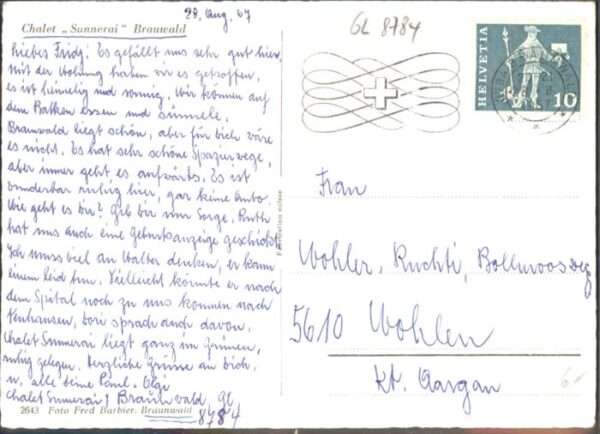 28. Aug. 67
Chalet „Sunnerai" Braunwald
Liebes Fridy! Es gefällt uns sehr gut hier,
mit der Wohnung haben wir es getroffen,
es ist heimelig und sonnig. Wir können auf
dem Balkon essen und sünnele.
Braunwald liegt schön, aber für dich wäre
es nicht. Es hat sehr schöne Spazierwege,
aber immer geht es aufwärts. Es ist
wunderbar ruhig hier, gar keine Auto.
Wie geht es dir? Gib dir nur Sorge. Ruth
hat uns auch eine Geburtsanzeige geschickt.
Ich muss viel an Walter denken, er kann
einem leid tun. Vielleicht könnte er nach
dem Spital noch zu uns kommen nach
Neuhausen, Dori sprach auch davon.
Chalet Sunnerai liegt ganz im Grünen,
ruhig gelegen. Herzliche Grüsse an dich
u. alle deine Fam. Olgi
Chalet Sunnerai, Braunwald, Gl
8784
2643 Foto Fred Barbier, Braunwald
GL 8784
HELVETIA
10
Frau
Wohler, Ruchti, Bollmoosweg
5610 Wohlen
Kt. Aargau